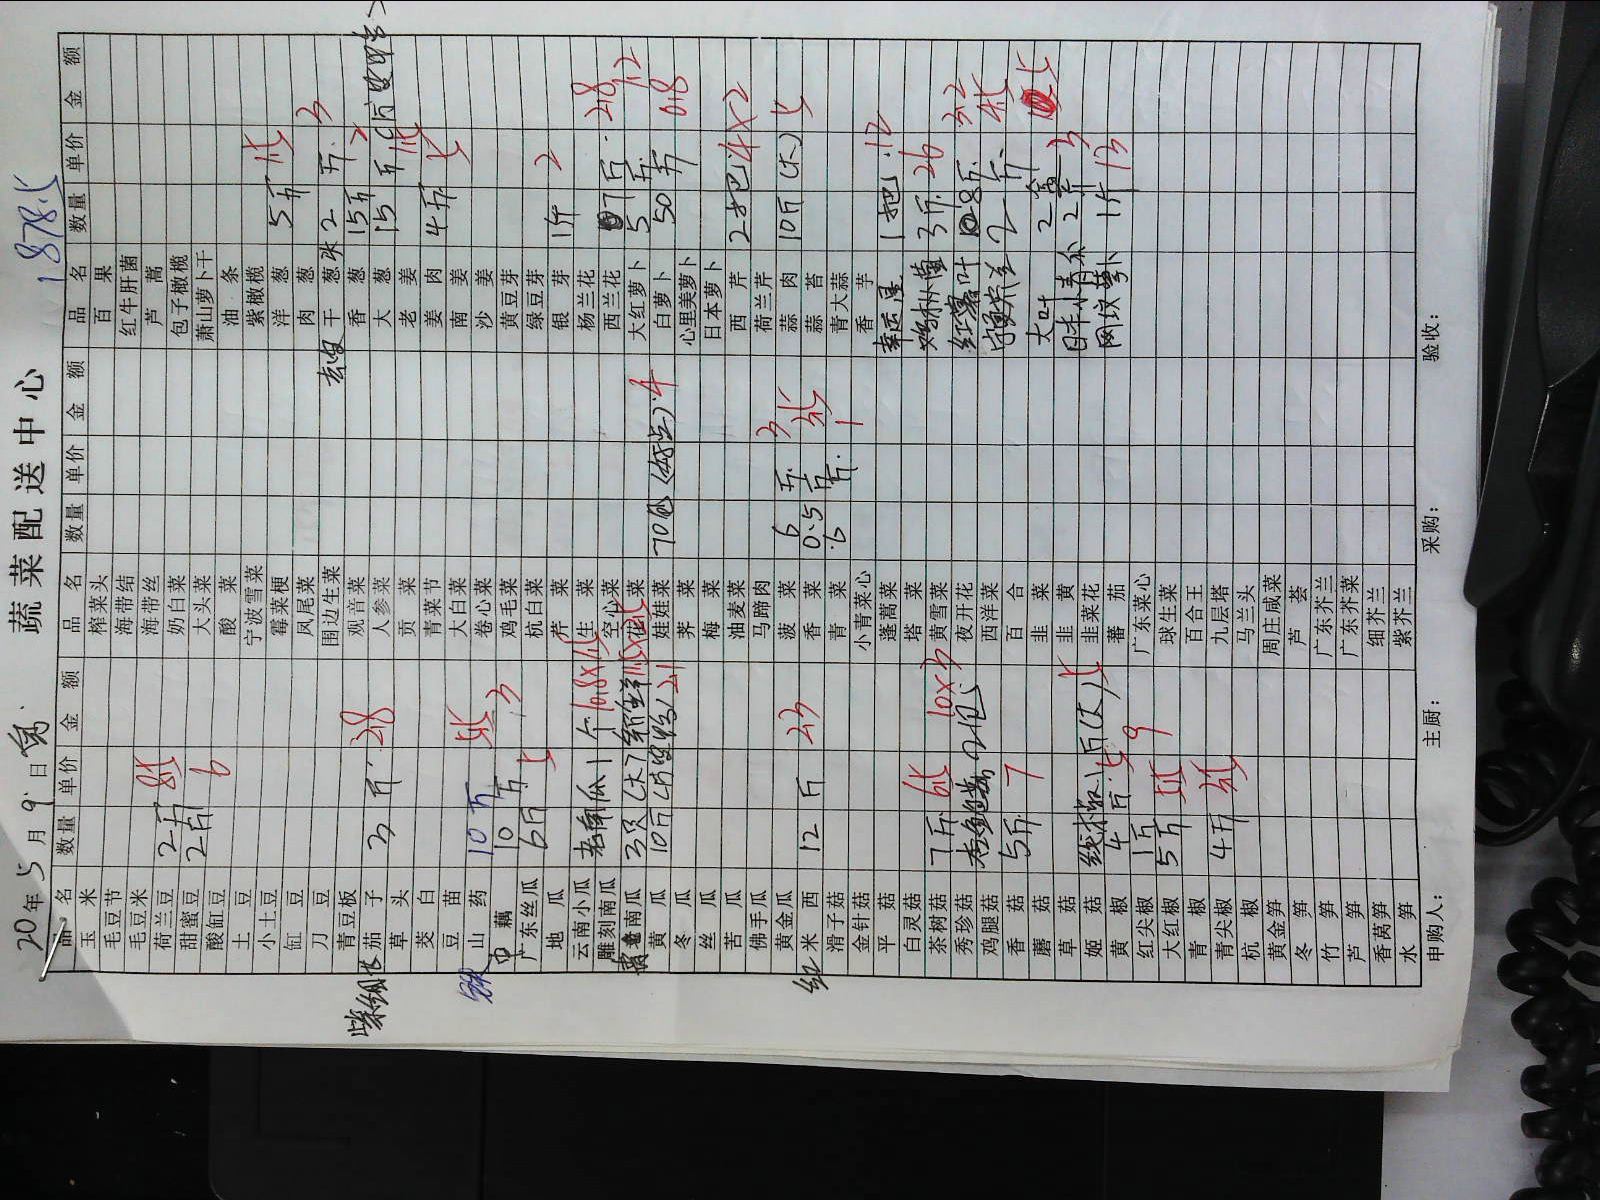 蔬菜配送中心
20 年 5 月 9 日 1878.5
品名 数量 单价 金额 品名 数量 单价 金额 品名 数量 单价 金额
玉米 榨菜头 百果
毛豆节 海带结 红牛肝菌
毛豆米 海带丝 芦蒿
荷兰豆 2斤 8.5 奶白菜 包子橄榄
甜蜜豆 2斤 6 大头菜 萧山萝卜干
酸缸豆 酸菜 油条
土豆 宁波雪菜 紫橄榄
小土豆 霉菜梗 洋葱 5斤 1.5
缸豆 凤尾菜 肉葱
刀豆 围边生菜 干葱 2斤 3
青豆板 观音菜 香葱 15斤 2
茄子 3斤 2.8 人参菜 大葱 15斤 1.5
草头 贡菜 老姜
茭白 青菜节 姜肉 4斤 5
豆苗 大白菜 南姜
山药 10斤 3.5 卷心菜 沙姜
藕 10斤 3 鸡毛菜 黄豆芽
广东丝瓜 6斤 5 杭白菜 绿豆芽
地瓜 芹菜 银芽 1斤 2
云南小瓜 老南瓜1个 生菜 杨兰花
雕刻南瓜 空心菜 西兰花 7斤 2.8
南瓜 3只 花菜 大红萝卜 5斤 1.2
黄瓜 10斤 2.1 娃娃菜 70 4 白萝卜 50斤 0.8
冬瓜 荠菜 心里美萝卜
丝瓜 梅菜 日本萝卜
苦瓜 油麦菜 西芹 2把 4×2
佛手瓜 马蹄肉 荷兰芹
黄金瓜 菠菜 6斤 3 蒜肉 10斤(大) 5
红米西 12斤 23 香菜 0.5斤 3.5 蒜苔
滑子菇 青菜 6斤 1 青大蒜
金针菇 小青菜心 香芋
平菇 蓬蒿菜 1把 12
白灵菇 塔菜 3斤 26
茶树菇 7斤 6.5 黄雪菜 红薯叶 8斤 3.2
秀珍菇 10×3 夜开花 2斤 4.5
鸡腿菇 西洋菜
香菇 5斤 7 百合 大叶 2盒 5
蘑菇 韭菜 日本小青瓜 2斤 3
草菇 韭黄 1斤 13
姬菇 线椒1斤(大) 5 韭菜花
黄椒 4斤 5 蕃茄
红尖椒 1斤 9 广东菜心
大红椒 5斤 5.5 球生菜
青椒 百合王
青尖椒 4斤 3.5 九层塔
杭椒 马兰头
黄金笋 周庄咸菜
冬笋 芦荟
竹笋 广东芥兰
芦笋 广东芥菜
香莴笋 细芥兰
水笋 紫芥兰
申购人： 主厨： 采购： 验收：